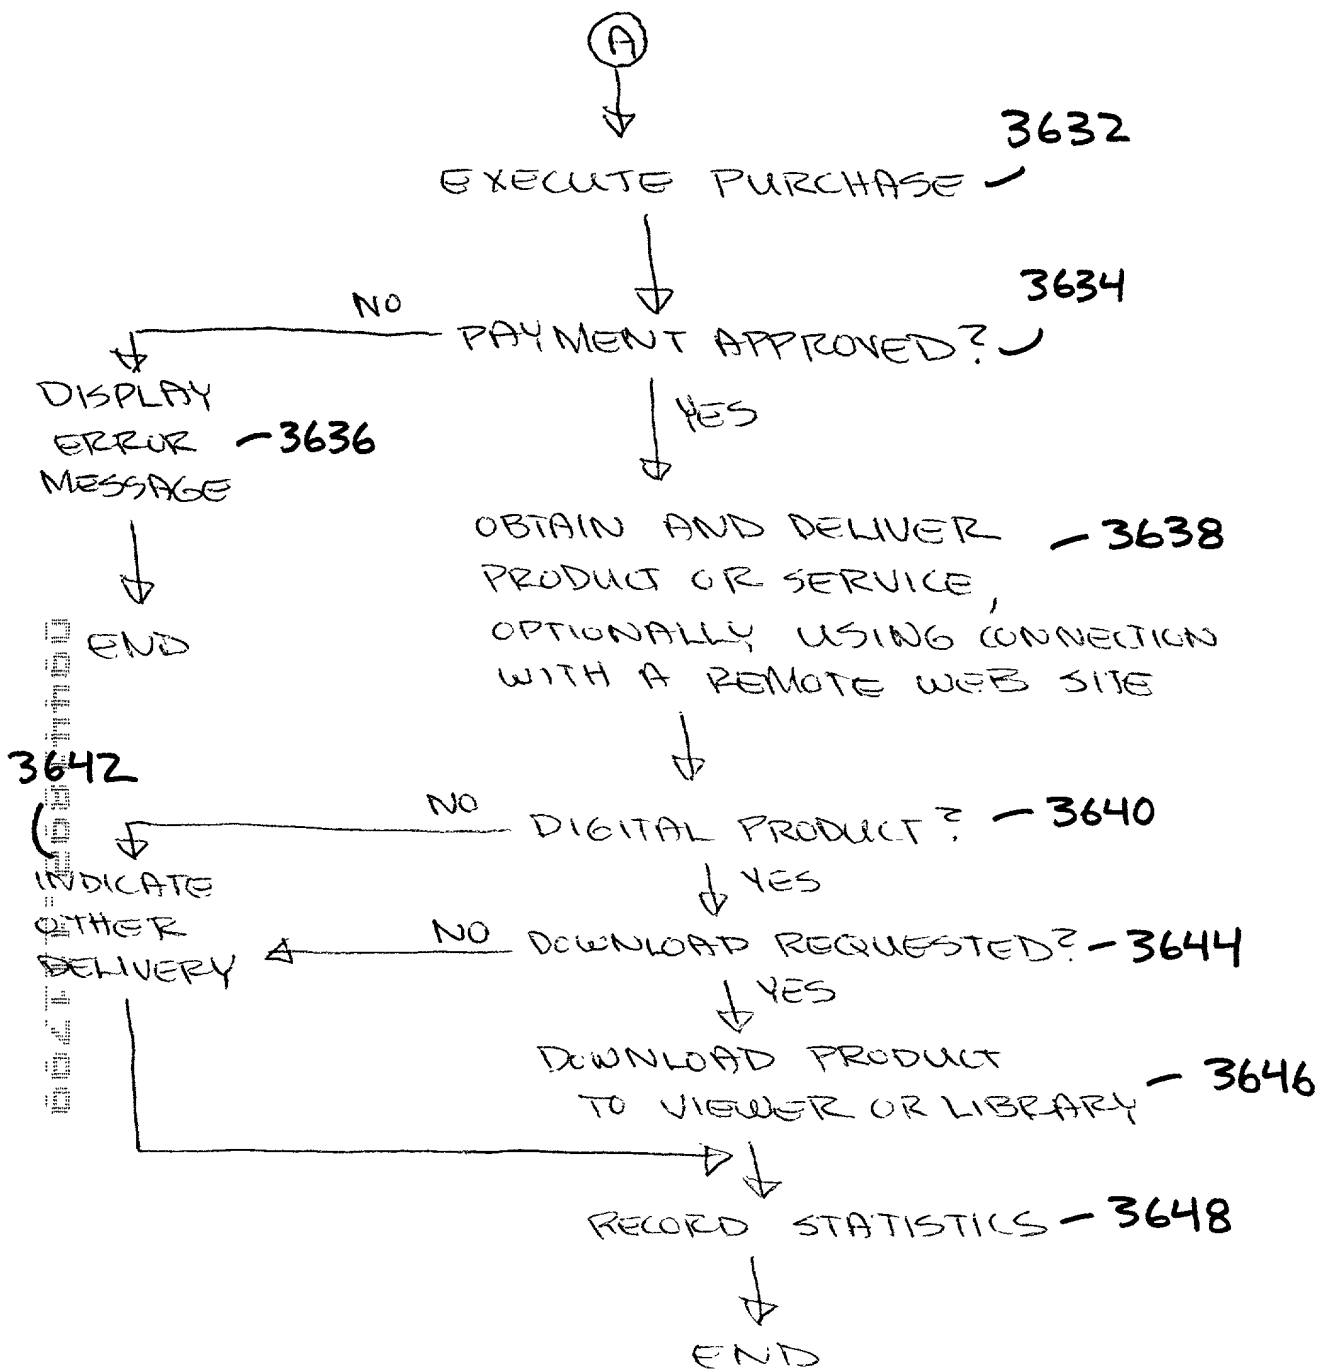 A
3632
EXECUTE PURCHASE
3634
NO
PAYMENT APPROVED?
YES
DISPLAY
ERROR
MESSAGE
3636
END
OBTAIN AND DELIVER
PRODUCT OR SERVICE,
OPTIONALLY USING CONNECTION
WITH A REMOTE WEB SITE
3638
3642
NO
DIGITAL PRODUCT?
3640
YES
INDICATE
OTHER
DELIVERY
NO
DOWNLOAD REQUESTED?
3644
YES
DOWNLOAD PRODUCT
TO VIEWER OR LIBRARY
3646
RECORD STATISTICS
3648
END